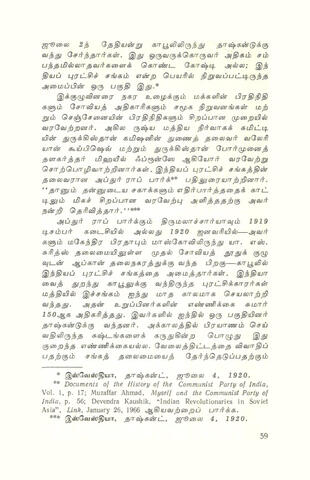 ஜூலை 2ந் தேதியன்று காபூலிலிருந்து தாஷ்கண்டுக்கு
வந்து சேர்ந்தார்கள். இது ஒருவருக்கொருவர் அதிகம் சம்
பந்தமில்லாதவர்களைக் கொண்ட கோஷ்டி அல்ல; இந்
தியப் புரட்சிச் சங்கம் என்ற பெயரில் நிறுவப்பட்டிருந்த
அமைப்பின் ஒரு பகுதி இது.*
இக்குழுவினரை நகர உழைக்கும் மக்களின் பிரதிநிதி
களும் சோவியத் அதிகாரிகளும் சமூக நிறுவனங்கள் மற்
றும் செஞ்சேனையின் பிரதிநிதிகளும் சிறப்பான முறையில்
வரவேற்றனர். அகில ருஷ்ய மத்திய நிர்வாகக் கமிட்டி
யின் துருக்கிஸ்தான் கமிஷனின் துணைத் தலைவர் வலேரி
யான் கூய்பிஷெவ் மற்றும் துருக்கிஸ்தான் போர்முனைத்
தளகர்த்தர் மிஹயீல் ஃப்ரூன்ஸே ஆகியோர் வரவேற்று
சொற்பொழிவாற்றினார்கள். இந்தியப் புரட்சிச் சங்கத்தின்
தலைவரான அப்துர் ராப் பார்க்** பதிலுரையாற்றினார்.
"தானும் தன்னுடைய சகாக்களும் எதிர்பார்த்ததைக் காட்
டிலும் மிகச் சிறப்பான வரவேற்பு அளித்ததற்கு அவர்
நன்றி தெரிவித்தார்."***
அப்துர் ராப் பார்க்கும் திருமலாச்சார்யாவும் 1919
டிசம்பர் கடைசியில் அல்லது 1920 ஜனவரியில்—அவர்
களும் மகேந்திர பிரதாபும் மாஸ்கோவிலிருந்து யா. எஸ்.
சுரித்ஸ் தலைமையிலுள்ள முதல் சோவியத் தூதுக் குழு
வுடன் ஆப்கான் தலைநகரத்துக்கு வந்த பிறகு—காபூலில்
இந்தியப் புரட்சிச் சங்கத்தை அமைத்தார்கள். இந்தியா
வைத் துறந்து காபூலுக்கு வந்திருந்த புரட்சிக்காரர்கள்
மத்தியில் இச்சங்கம் ஐந்து மாத காலமாக செயலாற்றி
வந்தது. அதன் உறுப்பினர்களின் எண்ணிக்கை சுமார்
150ஆக அதிகரித்தது. இவர்களில் ஐந்தில் ஒரு பகுதியினர்
தாஷ்கண்டுக்கு வந்தனர். அக்காலத்தில் பிரயாணம் செய்
வதிலிருந்த கஷ்டங்களைக் கருதுகின்ற பொழுது இது
குறைந்த எண்ணிக்கையல்ல. வேலைத்திட்டத்தை விவாதிப்
பதற்கும் சங்கத் தலைமையைத் தேர்ந்தெடுப்பதற்கும்
* இஸ்வேஸ்தியா, தாஷ்கண்ட், ஜூலை 4, 1920.
** Documents of the History of the Communist Party of India,
Vol. 1, p. 17; Muzaffar Ahmad, Myself and the Communist Party of
India, p. 56; Devendra Kaushik, "Indian Revolutionaries in Soviet
Asia", Link, January 26, 1966 ஆகியவற்றைப் பார்க்க.
*** இஸ்வேஸ்தியா, தாஷ்கண்ட், ஜூலை 4, 1920.
59